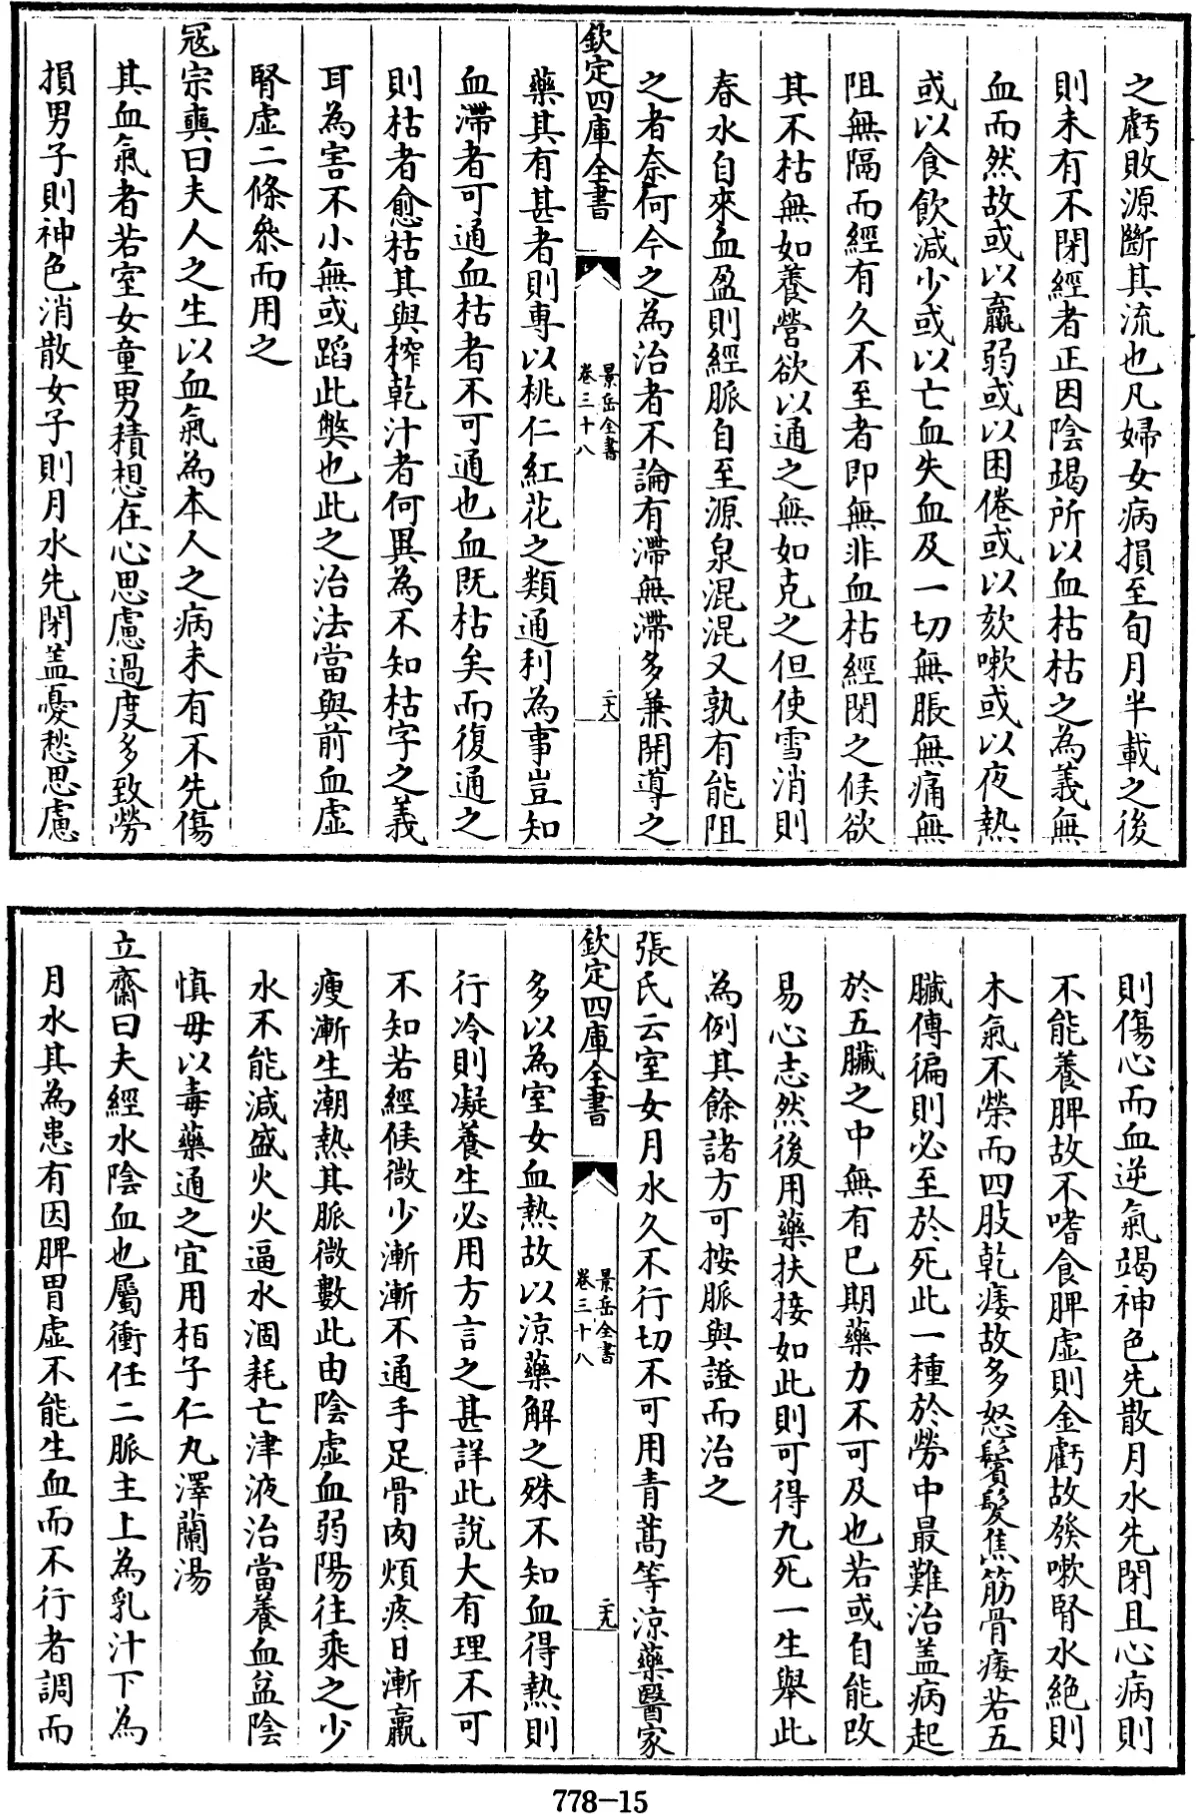 之虧敗源斷其流也凡婦女病損至旬月半載之後
則未有不閉經者正因陰竭所以血枯枯之為義無
血而然故或以羸弱或以困倦或以欬嗽或以夜熱
或以食飲減少或以亡血失血及一切無脹無痛無
阻無隔而經有久不至者即無非血枯經閉之候欲
其不枯無如養營欲以通之無如克之但使雪消則
春水自來血盈則經脈自至源泉混混又孰有能阻
之者奈何今之為治者不論有滯無滯多兼開導之
欽定四庫全書
景岳全書
卷三十八
二十八
藥其有甚者則專以桃仁紅花之類通利為事豈知
血滯者可通血枯者不可通也血既枯矣而復通之
則枯者愈枯其與榨乾汁者何異為不知枯字之義
耳為害不小無或蹈此弊也此之治法當與前血虛
腎虛二條叅而用之
冦宗奭曰夫人之生以血氣為本人之病未有不先傷
其血氣者若室女童男積想在心思慮過度多致勞
損男子則神色消散女子則月水先閉盖憂愁思慮
則傷心而血逆氣竭神色先散月水先閉且心病則
不能養脾故不嗜食脾虛則金虧故發嗽腎水絕則
木氣不榮而四肢乾痿故多怒鬢髮焦筋骨痿若五
臟傳徧則必至於死此一種於勞中最難治盖病起
於五臟之中無有已期藥力不可及也若或自能改
易心志然後用藥扶接如此則可得九死一生舉此
為例其餘諸方可按脈與證而治之
張氏云室女月水久不行切不可用青蒿等涼藥醫家
欽定四庫全書
景岳全書
卷三十八
二十九
多以為室女血熱故以涼藥解之殊不知血得熱則
行冷則凝養生必用方言之甚詳此說大有理不可
不知若經候微少漸漸不通手足骨肉煩疼日漸羸
瘦漸生潮熱其脈微數此由陰虛血弱陽往乘之少
水不能減盛火火逼水涸耗亡津液治當養血益陰
慎毋以毒藥通之宜用柏子仁丸澤蘭湯
立齋曰夫經水陰血也屬衝任二脈主上為乳汁下為
月水其為患有因脾胃虛不能生血而不行者調而
778-15